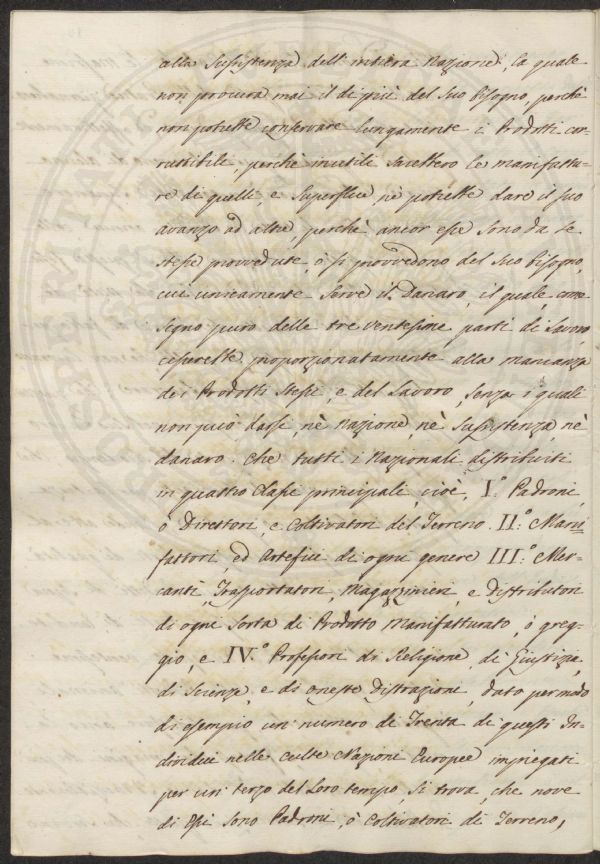 alla Susistenza dell'intiera Nazione, la quale
non procura mai il di più del suo bisogno, perchè
non potrebbe conservare lungamente i Prodotti cor-
ruttibili, perchè inutili sarebbero le manifattu-
re di quelli, e superflue, nè potrebbe dare il suo
avanzo ad altre, perchè ancor esse sono da se
stesse provvedute, ò si provvedono del suo bisogno,
cui unicamente serve il Danaro, il quale, come
segno puro delle tre ventesime parti di Lavoro
cesserebbe proporzionatamente alla mancanza
dei Prodotti stessi, e del Lavoro, senza i quali
non può darsi, nè Nazione, nè Susistenza, nè
danaro. Che tutti i Nazionali distribuiti
in quattro Classi principali, cioè, I.° Padroni,
ò Direttori, e Coltivatori del Terreno. II.° Mani-
fattori, ed Artefici di ogni genere III.° Mer-
canti, Trasportatori, Magazzinieri, e Distributori
di ogni sorta di Prodotto manifatturato, ò greg-
gio, e IV.° Professori di Religione, di Giustizia,
di Scienze, e di oneste Distrazioni, dato per modo
di esempio un numero di Trenta di questi In-
dividui nelle culte Nazioni Europee impiegati
per un terzo del Loro tempo, si trova, che nove
di Essi sono Padroni, ò Coltivatori di Terreno,